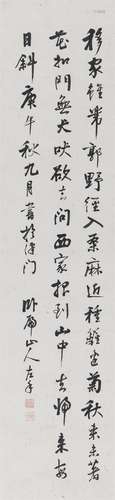 移家雖帶郭野徑入桑麻近種籬邊菊秋來未著
花扣門無犬吠欲去問西家報到山中去歸來每
日斜 庚午秋九月書於津门 山人左手